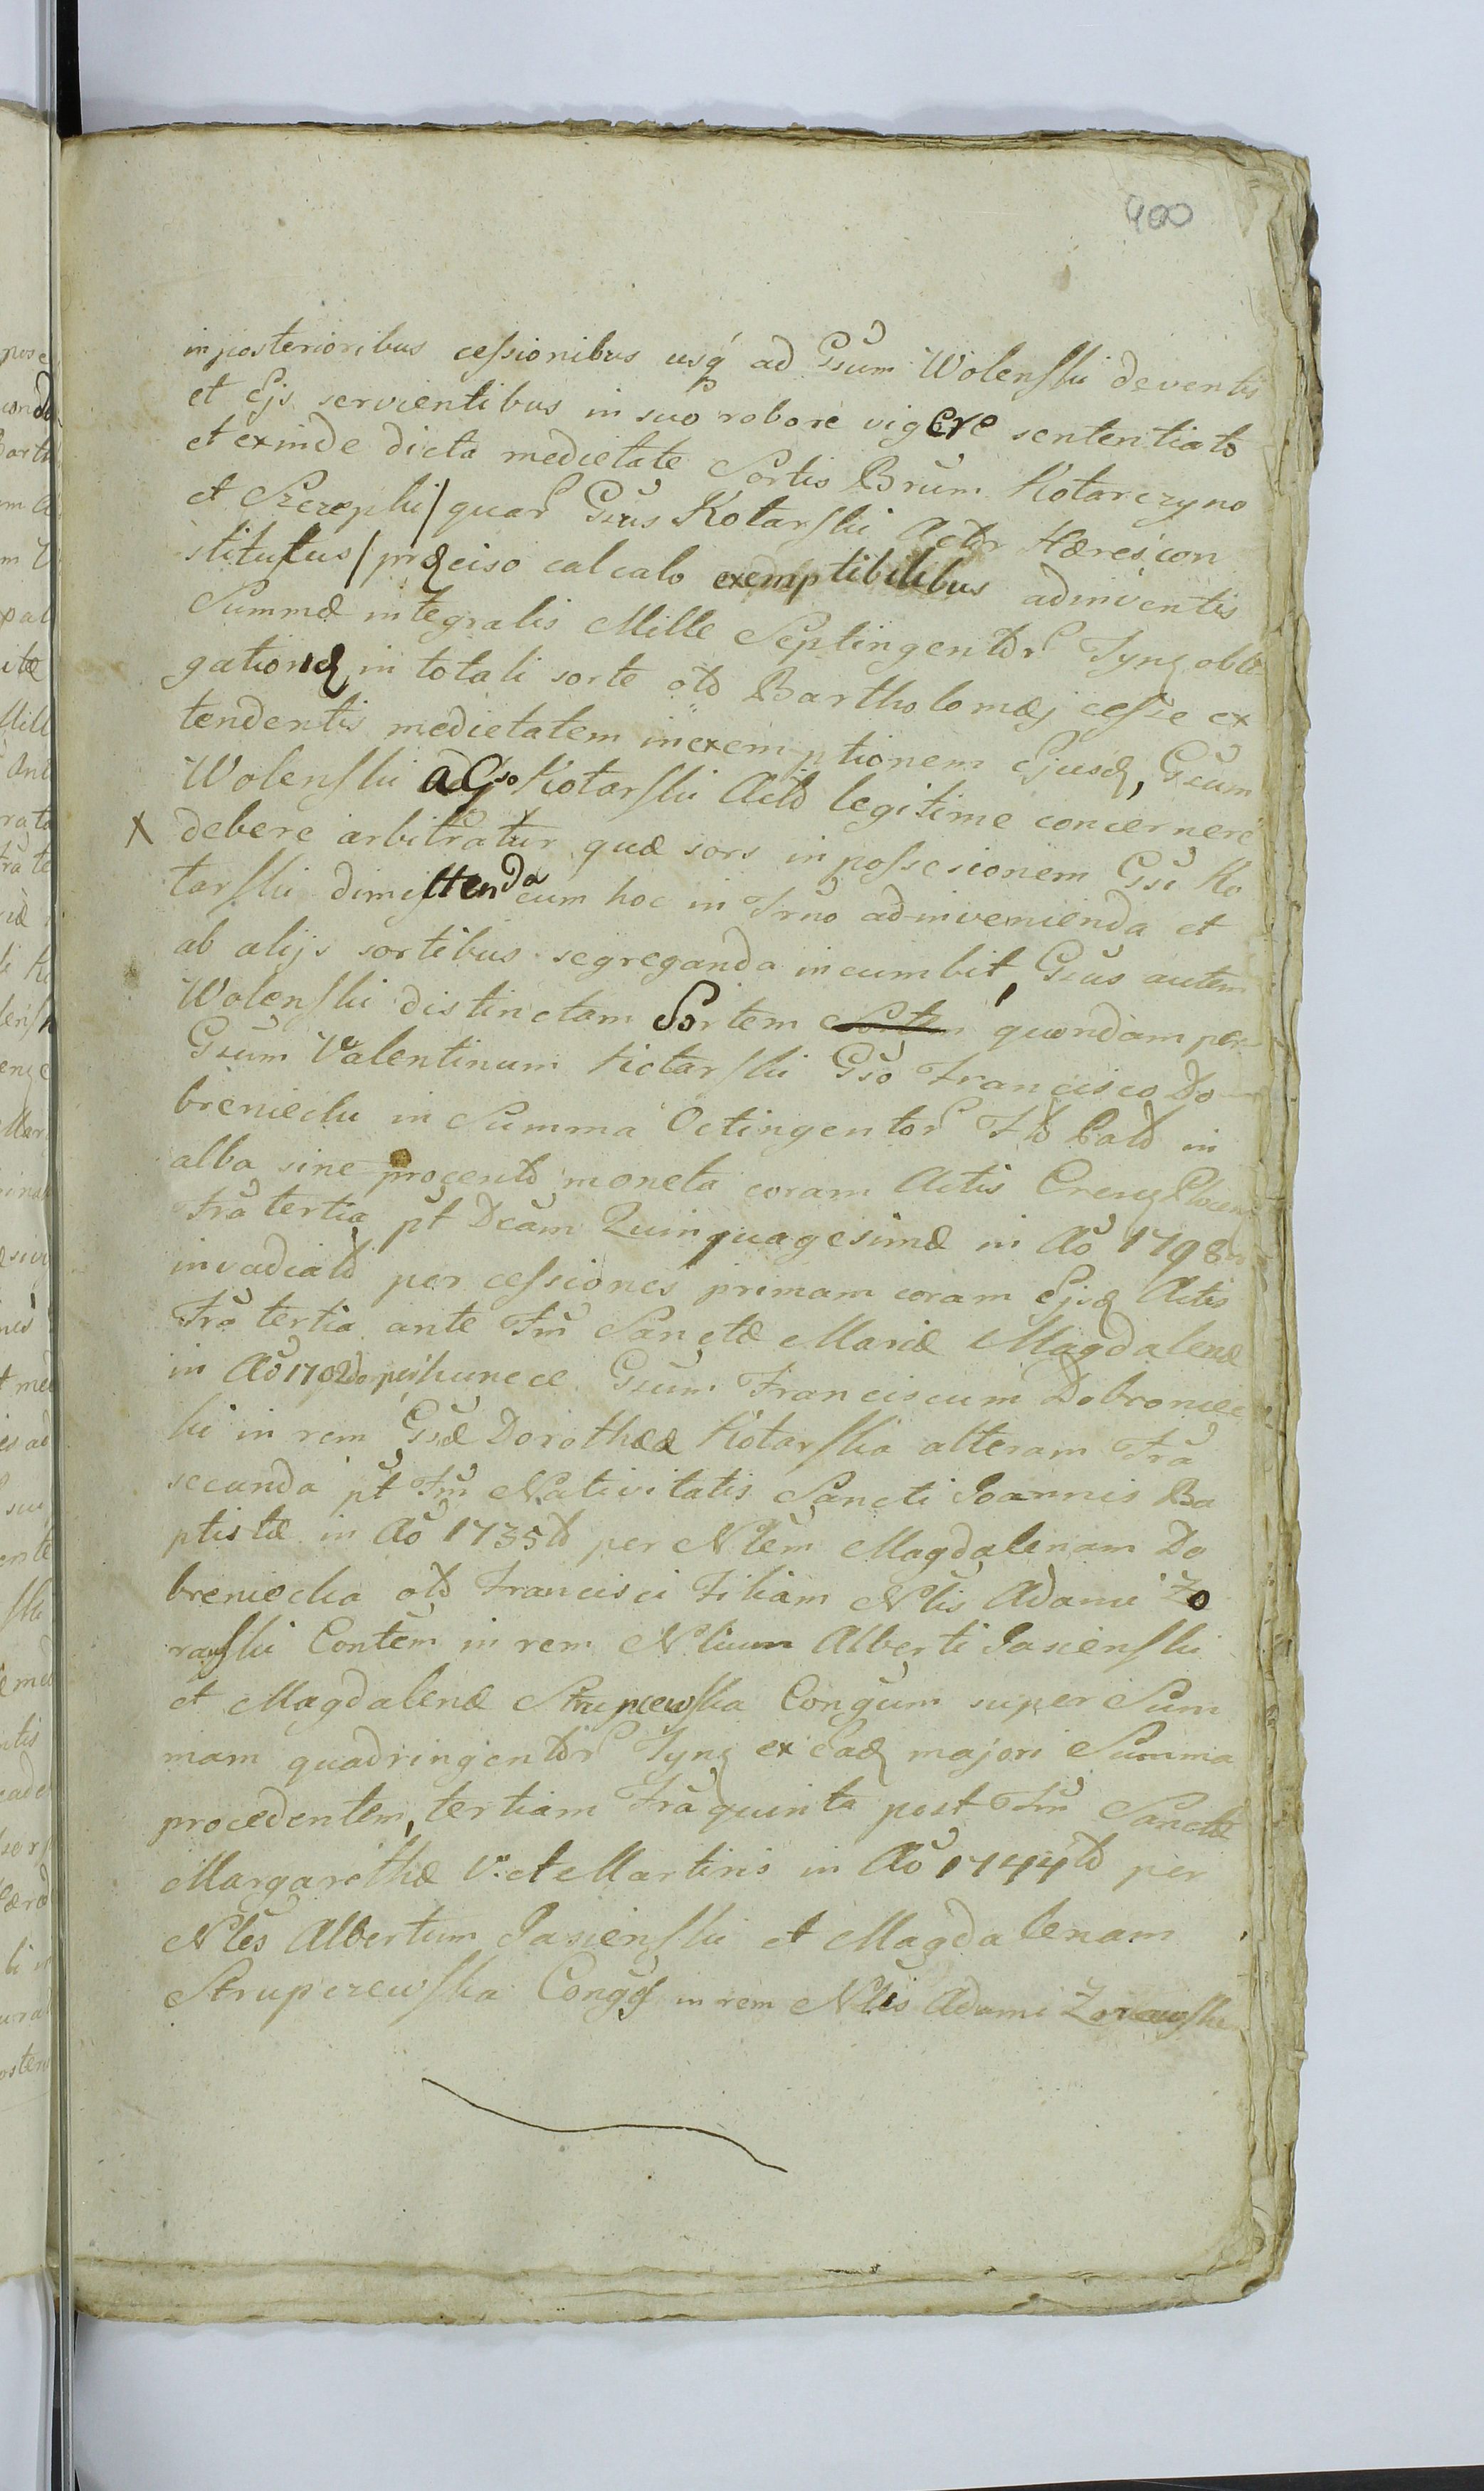 400
in posterioribus cessionibus usq́ ad Gsum Wolenski deventis
et Ejs servientibus in suo robore vigere sententiato
et exinde dicta medietate Sortis Brum Kotarczyno
et Szczepki / quar Gsus Kotarski Actor Hæres con
stitutus / præciso calculo exemptibilibus adinventis
Summæ integralis Mille Septingentor Tynf obli
gationẽ in totali sorte oło Bartholomæj cesse ex
tendentis medietatem in exemptionem Ejusd, Gsum
Wolenski a Gso Kotarski Acto legitime concernere
X debere arbitratur quæ sors in possesionem Gsi Ko
tarski dimittenda cum hoc in Trno adinvenienda et
ab alijs sortibus segreganda incumbit, Gsus autem
Wolenski distinctam Sortem quondam per
Gsum Valentinum Kotarski Gso Francisco Do
breniecki in Summa Octingentor in
alba sine procento moneta coram Actis
Fra tertia pt Dcam Quinquagesimæ in Ao 1798
invadiato per cessiones primam coram Ejsd Actis
Fra tertia ante Fm Sanctæ Mariæ Magdalenæ
in Ao 1702do per hunc ce Gsum Franciscum Dobroniec
ki in rem Gsæ Dorotheæ Kotarska alteram Fra
secunda pt Fm Nativitatis Sancti Joannis Ba
ptistæ in Ao 1735to per Nlem Magdalenam Do
breniecka oło Francisci Filiam Nlis Adami Zo
rawski Contem in rem Nlium Alberti Jasienski
et Magdalenæ Strupczewska Congum super Sum
mam quadringentor Tynf ex Ead majori Summa
procedentem, tertiam Fra quinta post Fm Sanctæ
Margarethæ V. et Martiris in Ao 1744to per
Nles Albertum Jasienski et Magdalenam
Strupczewska Conges in rem Nlis Adami Zorawski